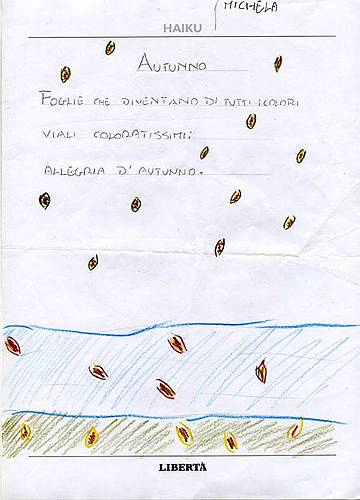 MICHELA
HAIKU
AUTUNNO
FOGLIE CHE DIVENTANO DI TUTTI I COLORI
VIALI COLORATISSIMI:
ALLEGRIA D'AUTUNNO.
LIBERTÀ